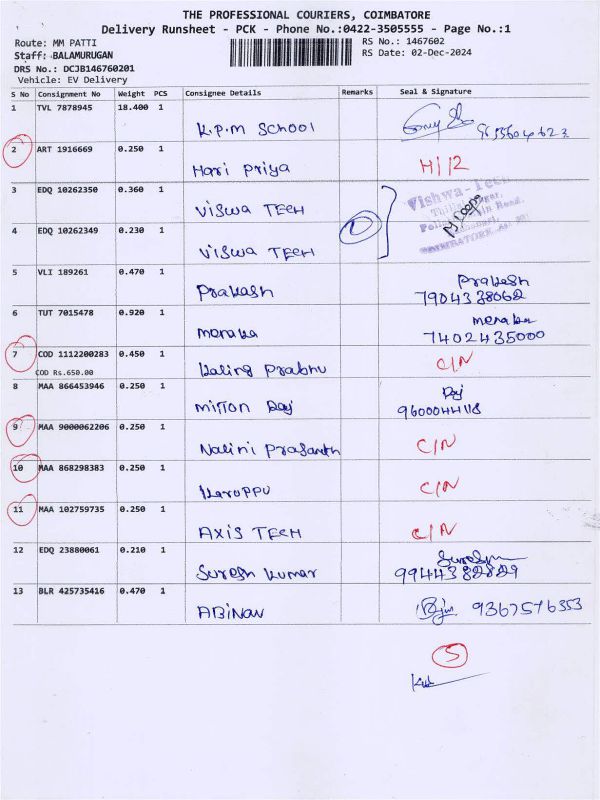 THE PROFESSIONAL COURIERS, COIMBATORE
Delivery Runsheet - PCK - Phone No.:0422-3505555 - Page No.:1
Route: MM PATTI
RS No.: 1467602
Staff: BALAMURUGAN
RS Date: 02-Dec-2024
DRS No.: DCJB146760201
Vehicle: EV Delivery
S No Consignment No Weight PCS Consignee Details Remarks Seal & Signature
1 TVL 7878945 18.400 1
K.P.M School
2 ART 1916669 0.250 1
Hari Priya H/12
3 EDQ 10262350 0.360 1
Viswa TECH
Vishwa-Tech
4 EDQ 10262349 0.230 1
Viswa TECH
5 VLI 189261 0.470 1
Prakash Prakash
7904338062
6 TUT 7015478 0.920 1
menaka menaka
7402435000
7 COD 1112200283 0.450 1
COD Rs.650.00
Prabhu C/N
8 MAA 866453946 0.250 1
Milton Raj Raj
9600044118
9 MAA 9000062206 0.250 1
Nalini Prasanth C/N
10 MAA 868298383 0.250 1
Karuppu C/N
11 MAA 102759735 0.250 1
AXIS TECH C/N
12 EDQ 23880061 0.210 1
Suresh Kumar
9944382829
13 BLR 425735416 0.470 1
ABINAV 9367576353
5